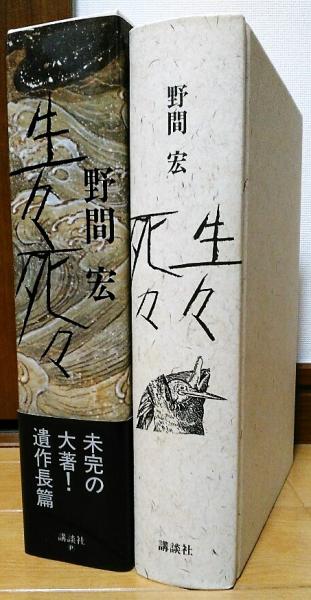 生々死々
野間 宏
未完の
大著!
遺作長篇
講談社
P
野間 宏
生々
死々
講談社